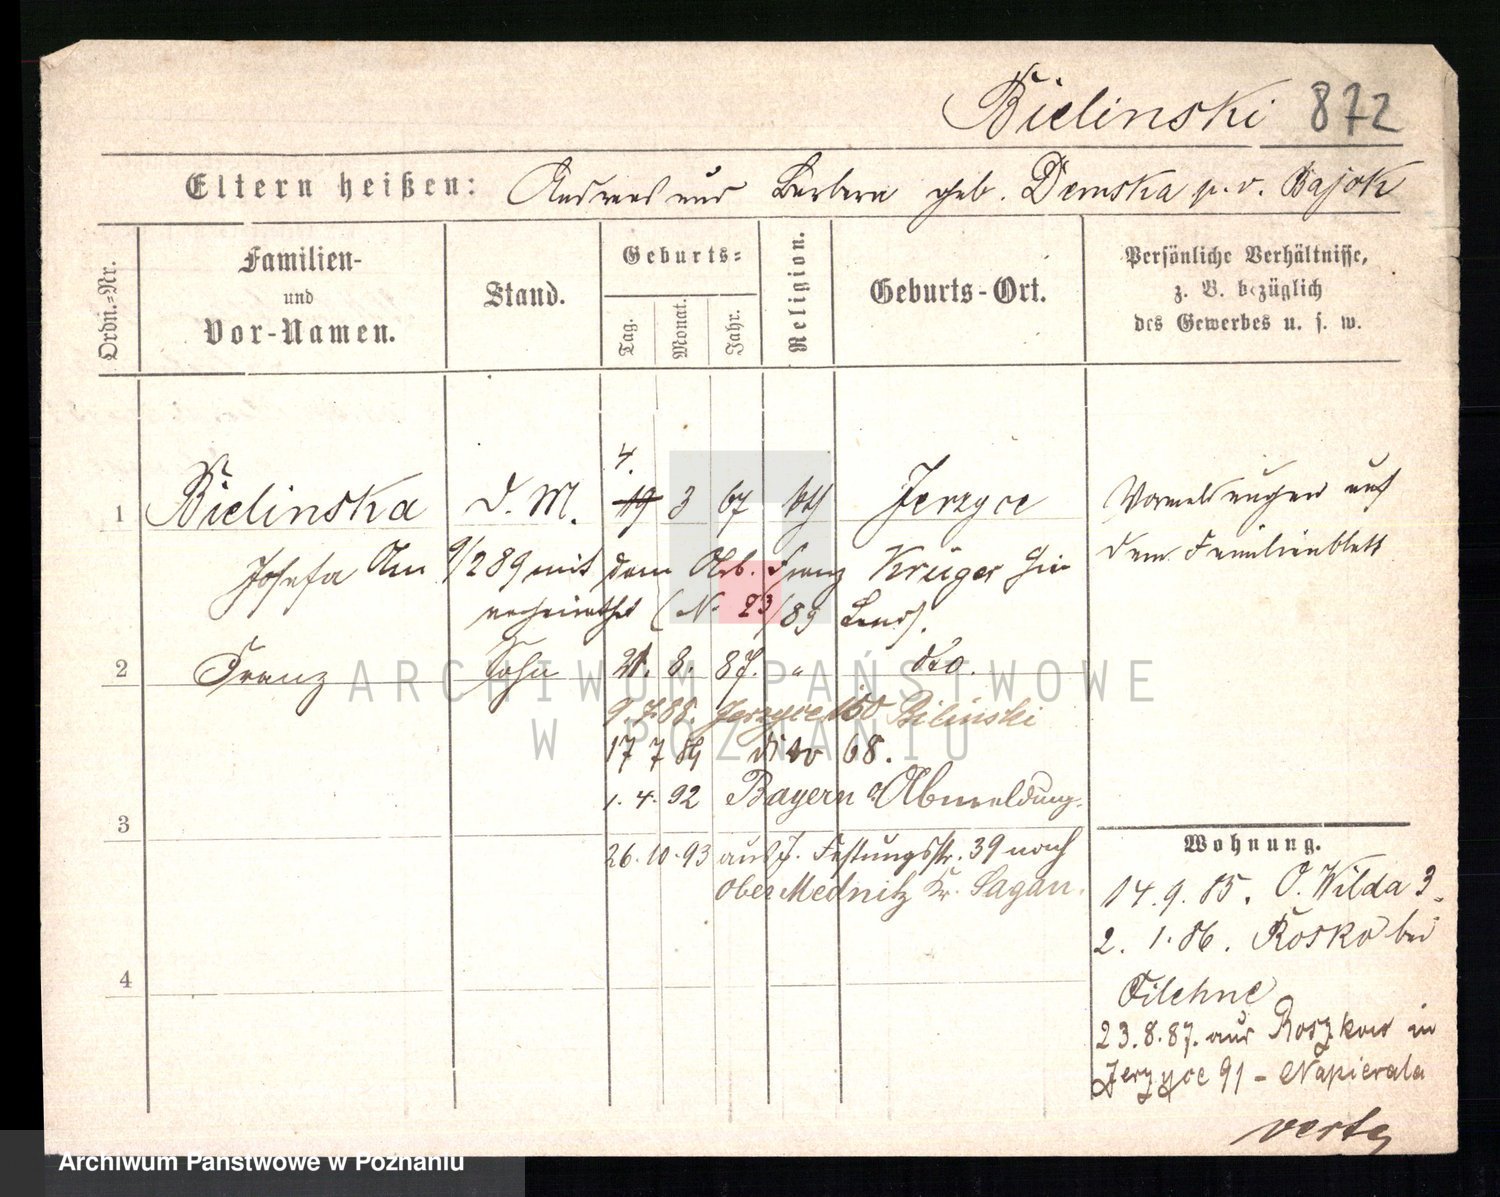 Bielinski 872
Eltern heißen: Andreas und Barbara geb. Demska p. v. Bajok
Ordn.-Nr.
Familien-
und
Vor-Namen.
Stand.
Geburts-
Tag.
Monat.
Jahr.
Religion.
Geburts-Ort.
Persönliche Verhältnisse,
z. B. bezüglich
des Gewerbes u. s. w.
4.
1 Bielinska d. M. 19 3 67 kth Jerzyce
Vormeldungen auf
dem Familienblatt
Josefa 9/2 89 mit dem Arb. Franz Krüger hier
verheirathet (N. 23/89 Land).
2 Franz Sohn 21. 8. 87. " dto.
9. 7. 88. Jerzyce 150 Bilinski
17 7 89 dito 68.
1. 4. 92 Bayern Abmeldung.
3
26. 10. 93 aus J. Festungsstr. 39 nach
Ober Mednitz Kr. Sagan.
4
Wohnung.
14. 9. 85. O. Wilda 3.
2. 1. 86. Rosko bei
Filehne
23. 8. 87. aus Roszkow in
Jerzyce 91 - Napierala
verte
ARCHIWUM PAŃSTWOWE
W POZNANIU
Archiwum Państwowe w Poznaniu